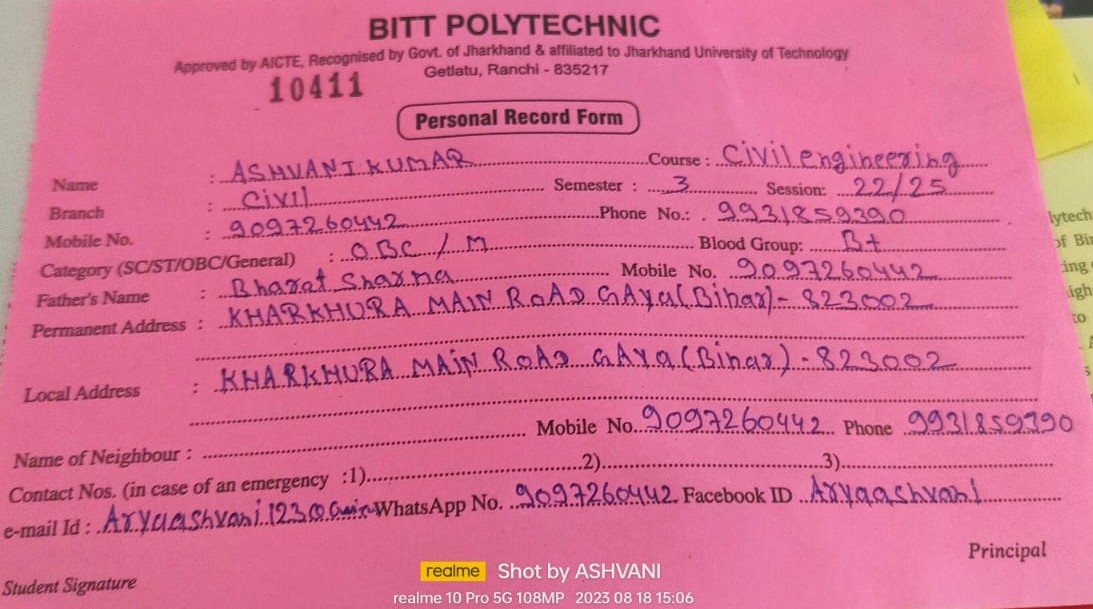 BITT POLYTECHNIC
Approved by AICTE, Recognised by Govt. of Jharkhand & affiliated to Jharkhand University of Technology
Getlatu, Ranchi - 835217
10411
Personal Record Form
Name : ASHVANI KUMAR Course : Civil engineering
Branch : Civil Semester : 3 Session: 22/25
Mobile No. : 9097260442 Phone No.: 9931859390
Category (SC/ST/OBC/General) : OBC / M Blood Group: B+
Father's Name : Bharat Sharma Mobile No. 9097260442
Permanent Address : KHARKHURA MAIN ROAD GAYa(Bihar)- 823002
Local Address : KHARKHURA MAiN ROAD GAYa(Bihar)-823002
Mobile No. 9097260442 Phone 9931859390
Name of Neighbour :
Contact Nos. (in case of an emergency :1) 2) 3)
e-mail Id : Aryaashvani123@ WhatsApp No. 9097260442 Facebook ID Aryaashvani
Principal
Student Signature
realme Shot by ASHVANI
realme 10 Pro 5G 108MP 2023 08 18 15:06